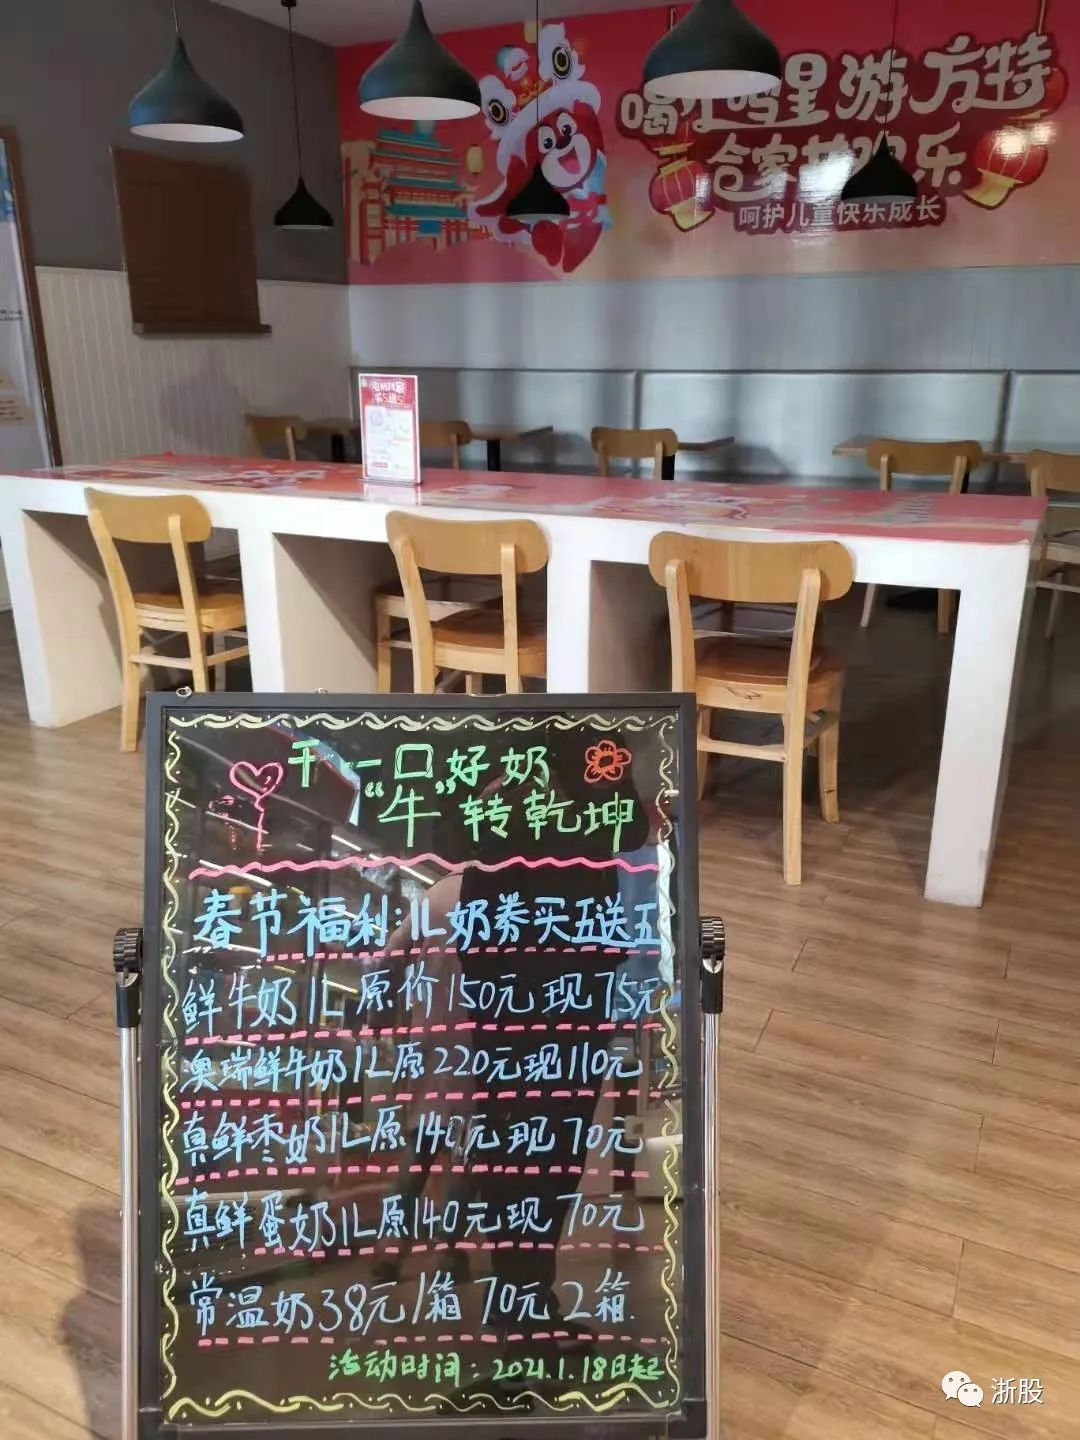 星游方特
合家共欢乐
呵护儿童快乐成长
干一口好奶
“牛”转乾坤
春节福利:1L奶券买五送五
鲜牛奶1L原价150元现75元
澳瑞鲜牛奶1L原220元现110元
真鲜枣奶1L原140元现70元
真鲜蛋奶1L原140元现70元
常温奶38元/箱 70元2箱.
活动时间:2021.1.18日起
浙股